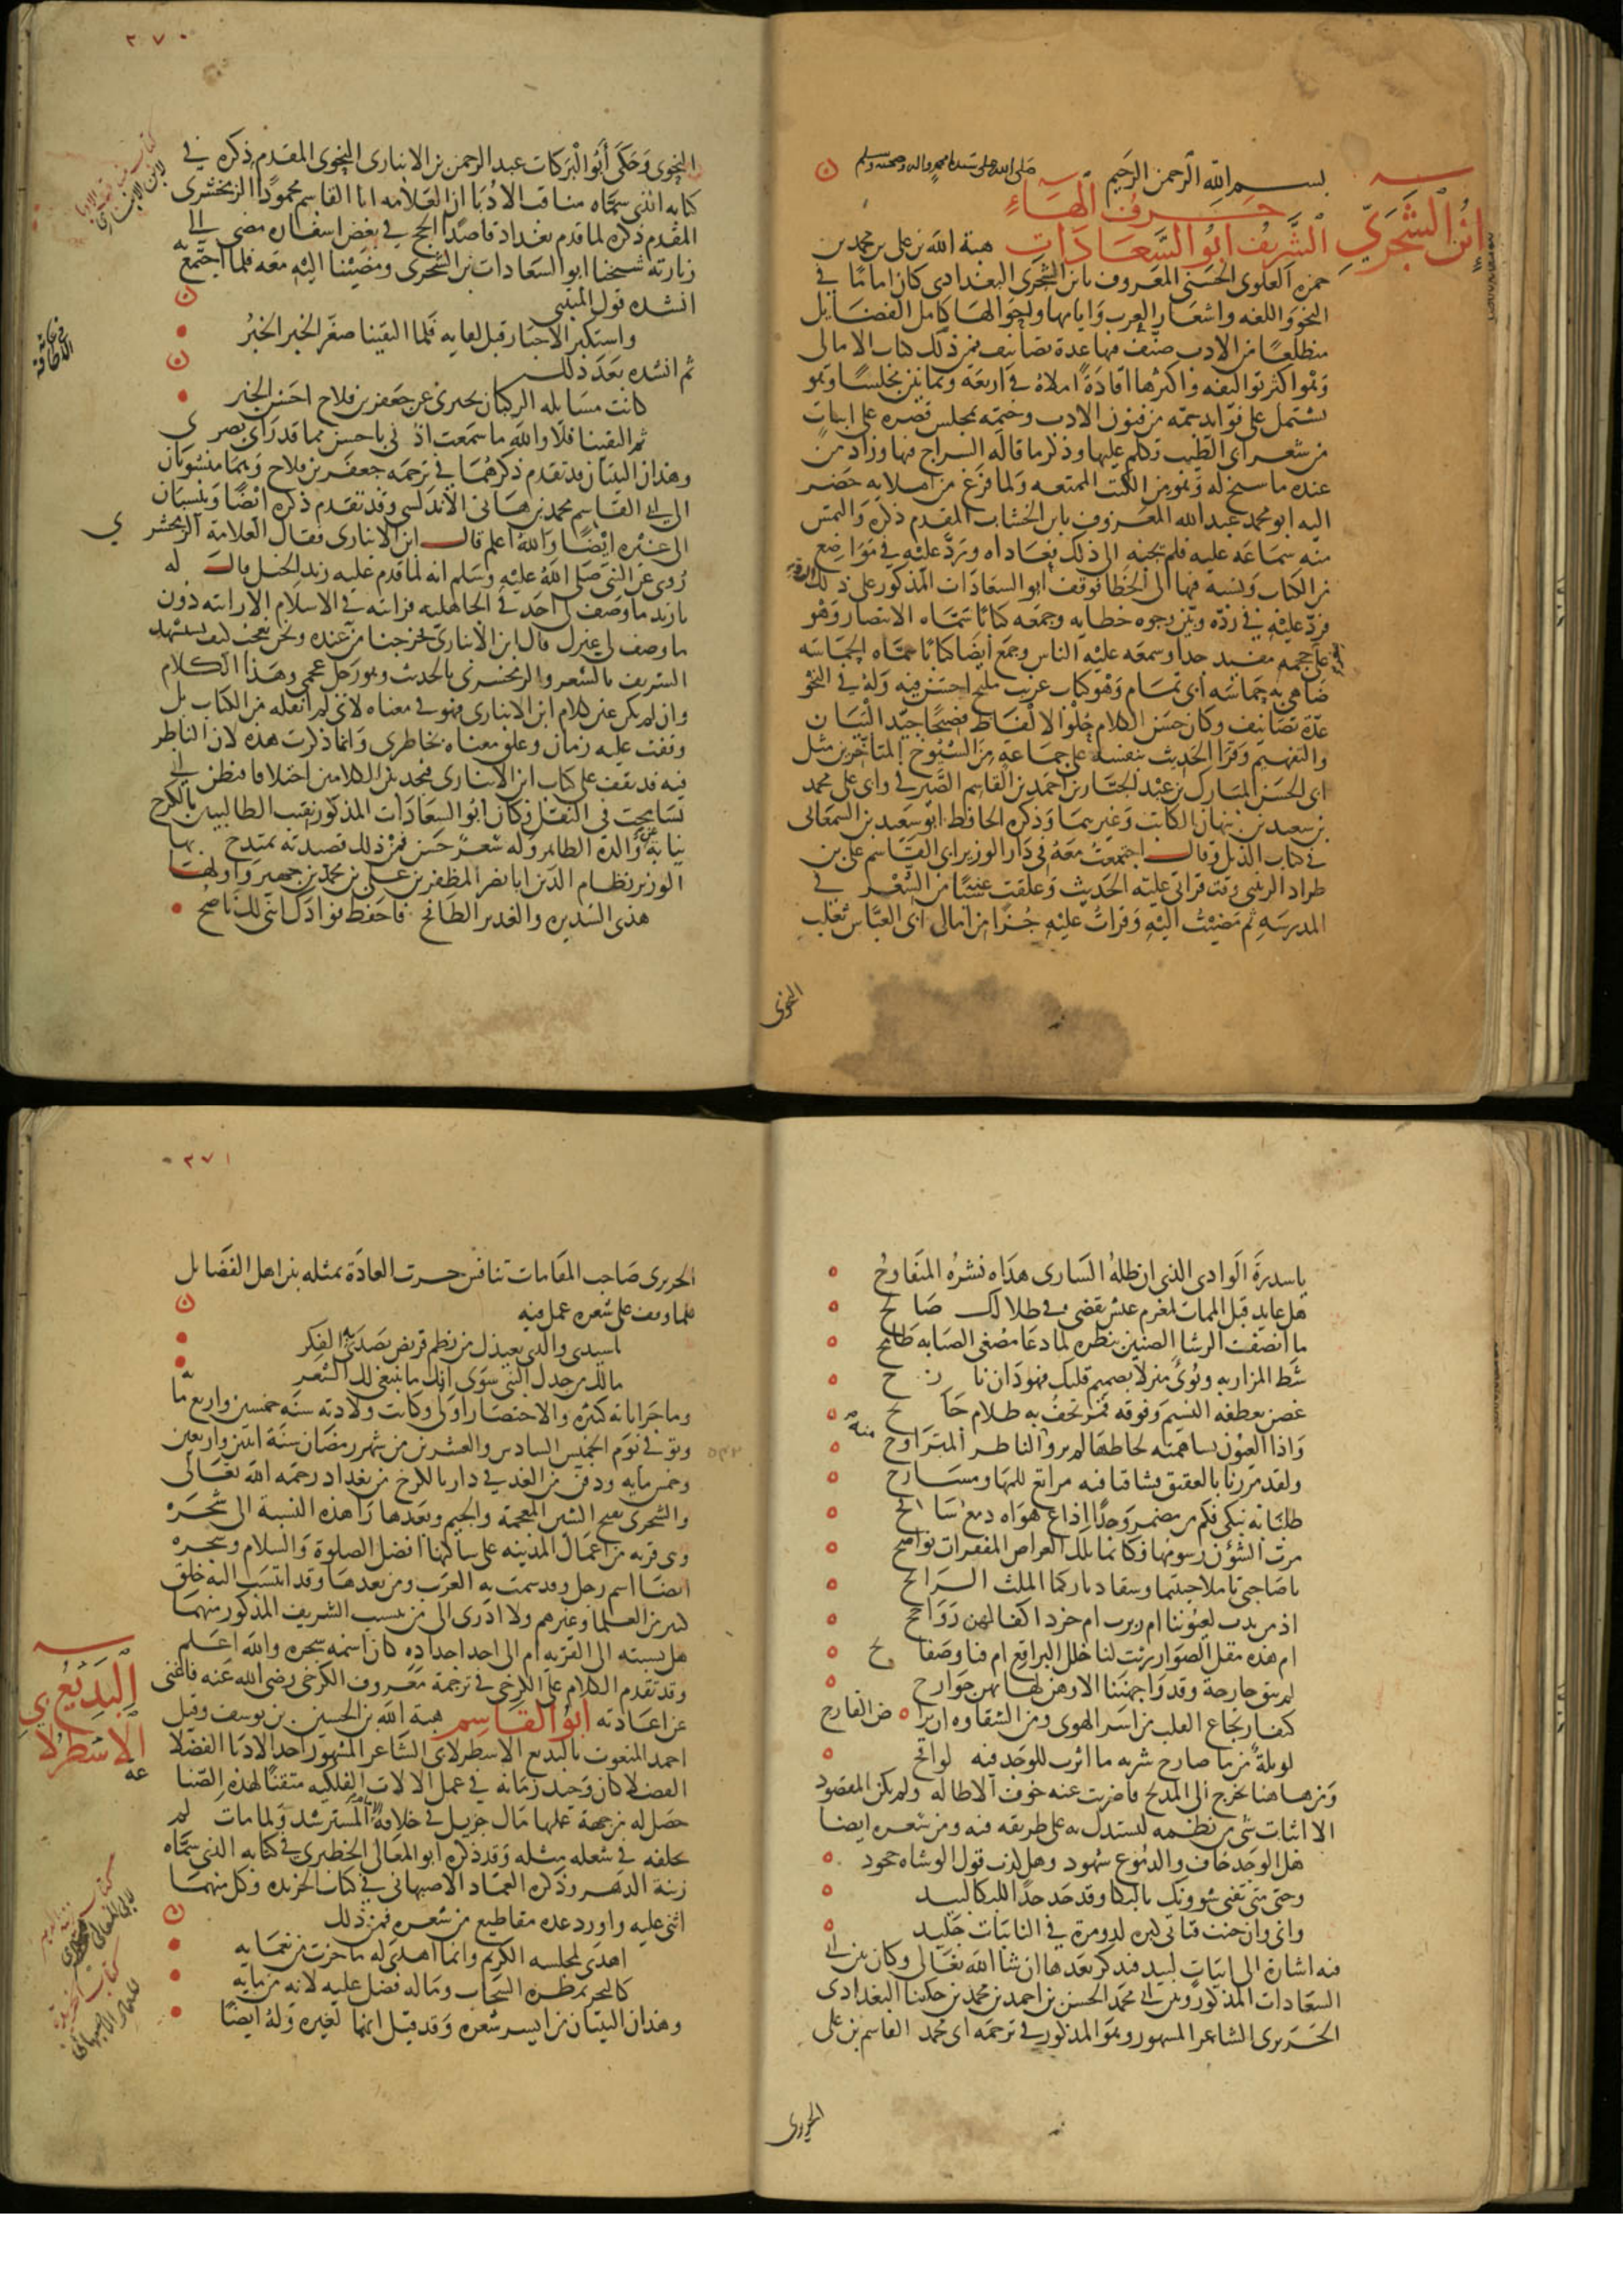 بسم الله الرحمن الرحيم صلى الله على سيدنا محمد واله وصحبه وسلم
حرف الهاء
ابن الشجري
الشريف ابو السعادات هبة الله بن على بن محمد بن
حمزه العلوى الحسنى المعروف بابن الشجرى البغدادى كان اماما في
النحو واللغه واشعار العرب وايامها واحوالها كامل الفضايل
متضلعا من الادب صنف فيها عدة تصانيف فمن ذلك كتاب الامالى
وهو اكبر تواليفه واكثرها افادة املاه في اربعة وثمانين مجلسا وهو
يشتمل على فوايد جمه من فنون الادب وختمه بمجلس قصره على ابيات
من شعر ابى الطيب تكلم عليها وذكر ما قاله الشراح فيها وزاد من
عنده ما سنح له وهو من الكتب الممتعه ولما فرغ من املايه حضر
اليه ابو محمد عبد الله المعروف بابن الخشاب المقدم ذكره والتمس
منه سماعه عليه فلم يجبه الى ذلك فعاداه ورد عليه في مواضع
من الكتاب ونسبه فيها الى الخطا فوقف ابو السعادات المذكور على ذلك الرد
فرد عليه في رده وبين وجوه خطايه وجمعه كتابا سماه الانتصار وهو
على حجمه مفيد جدا وسمعه عليه الناس وجمع ايضا كتابا سماه الحماسه
ضاهى به حماسه ابى تمام وهو كتاب غريب مليح احسن فيه وله في النحو
عدة تصانيف وكان حسن الكلام حلو الالفاظ فصيحا جيد البيان
والتفهيم وقرا الحديث بنفسه على جماعة من الشيوخ المتاخرين مثل
ابى الحسن المبارك بن عبد الجبار بن احمد بن القاسم الصيرفي وابى على محمد
بن سعيد بن نبهان الكاتب وغيرهما وذكره الحافظ ابو سعيد بن السمعانى
في كتاب الذيل وقال اجتمعت معه في دار الوزير ابى القاسم على بن
طراد الزينبى وقت قراتى عليه الحديث وعلقت عنه شيا من الشعر في
المدرسه ثم مضيت اليه وقرات عليه جزا من امالى ابى العباس ثعلب
النحوى
٢٧٠
النحوى وحكى ابو البركات عبد الرحمن بن الانبارى النحوى المقدم ذكره في
كتابه الذى سماه مناقب الادبا ان العلامه ابا القاسم محمودا الزمخشرى
المقدم ذكره لما قدم بغداد قاصدا الحج في بعض اسفاره مضى الى
زيارته شيخنا ابو السعادات بن الشجرى ومضينا اليه معه فلما اجتمع به
انشده قول المتنبى
واستكبر الاخبار قبل لقايه فلما التقينا صغر الخبر الخبر
ثم انشده بعد ذلك
كانت مسايله الركبان تخبرنى عن جعفر بن فلاح احسن الخبر
ثم التقينا فلا والله ما سمعت اذنى باحسن مما قد راى بصرى
وهذان البيتان قد تقدم ذكرهما في ترجمه جعفر بن فلاح وهما منسوبان
الى ابى القاسم محمد بن هانى الاندلسى وقد تقدم ذكره ايضا وينسبان
الى غيره ايضا والله اعلم قال ابن الانبارى فقال العلامة الزمخشرى
روى عن النبى صلى الله عليه وسلم انه لما قدم عليه زيد الخيل قال له
يا زيد ما وصف لى احد في الجاهليه فرايته في الاسلام الا رايته دون
ما وصف لى غيرك قال ابن الانبارى فخرجنا من عنده ونحن نعجب كيف يستشهد
الشريف بالشعر والزمخشرى بالحديث وهو رجل عجمى وهذا الكلام
وان لم يكن عين كلام ابن الانبارى فهو في معناه لانى لم انقله من الكتاب بل
وقفت عليه زمان وعلق معناه بخاطرى وانما ذكرت هذه لان الناظر
فيه قد يقف على كتاب ابن الانبارى فيجد بين الكلامين اختلافا فيظن انى
تسامحت في النقل وكان ابو السعادات المذكور نقيب الطالبيين بالكرخ
نيابة عن والده الطاهر وله شعر حسن فمن ذلك قصيدته يمتدح بها
الوزير نظام الدين ابا نصر المظفر بن على بن محمد بن جهير واولها
هذى السديره والغدير الطافح فاحفظ فوادك اننى لك ناصح
يا سدرة الوادى الذى ان ظله السارى هداه نشره المتفاوح
هل عايد قبل الممات لمغرم عيش تقضى في ظلالك صالح
ما انصف الرشا الضنين بنظره لما دعا مصغى الصبابه طامح
شط المزار به وبوى منزلا بصميم قلبك فهو دان نازح
غصن يعطفه النسيم وفوقه قمر تحف به ظلام جانح
واذا العيون تساهمته لحاظها لم يرو منه الناظر المتراوح
ولقد مررنا بالعقيق فشاقنا فيه مراتع للمها ومسارح
ظلنا به نبكى فكم من مضمر وجدا اذاع هواه دمع سافح
مرت الشؤن رسومها فكانما تلك العراص المقفرات نواضح
يا صاحبى تاملا حييتما وسقا دياركما الملث الرايح
ادمى بدت لعيوننا ام ربرب ام خرد اكفالهن رواجح
ام هذه مقل الصوار رنت لنا خلل البراقع ام قنا وصفايح
لم يبق جارحة وقد واجهننا الا وهن لها بهن جوارح
كيف ارتجاع القلب من اسر الهوى ومن الشقاوه ان يراض القارح
لو بله من ما صارح شربه ما اثرت للوجد فيه لوايح
ومن هاهنا يخرج الى المديح فاضربت عنه خوف الاطاله ولم يكن المقصود
الا اثبات شى من نظمه ليستدل به على طريقه فيه ومن شعره ايضا
هل الوجد خاف والدموع شهود وهل مكذب قول الوشاه جحود
وحتى متى تفنى شوونك بالبكا وقد حد حدا للبكا لبيد
وانى وان جفت قناتى كبره لذو مرة في النايبات جليد
فيه اشارة الى ابيات لبيد فيذكر بعدها ان شا الله تعالى وكان بين ابى
السعادات المذكور وبين ابى محمد الحسن بن احمد بن محمد بن حكينا البغدادى
الحريرى الشاعر المشهور وهو المذكور في ترجمة ابى محمد القاسم بن على
الحريرى
٢٧١
الحريرى صاحب المقامات تنافس جرت العادة بمثله بين اهل الفضايل
فلما وقف على شعره عمل فيه
يا سيدى والذى يعيذك من نظم قريض يصدى به الفكر
مالك من جدك النبى سوى انك ما ينبغى لك الشعر
وماجراياته كثيره والاختصار اولى وكانت ولادته سنه خمسين واربع ماية
وتوفى يوم الخميس السادس والعشرين من شهر رمضان سنة اثنين واربعين
وخمس مايه ودفن من الغد في داره بالكرخ من بغداد رحمه الله تعالى
والشجرى بفتح الشين المعجمة والجيم وبعدها را هذه النسبة الى شجرة
وهى قريه من اعمال المدينه على ساكنها افضل الصلوة والسلام وشجره
ايضا اسم رجل وقد سمت به العرب ومن بعدها وقد انتسب اليه خلق
كثير من العلما وغيرهم ولا ادرى الى من ينسب الشريف المذكور منهما
هل نسبته الى القريه ام الى احد اجداده كان اسمه شجره والله اعلم
وقد تقدم الكلام على الكرخى في ترجمة معروف الكرخى رضى الله عنه فاغنى
عن اعادته ابو القاسم هبة الله بن الحسين بن يوسف وقيل
البديع الاسطرلا
احمد المنعوت بالبديع الاسطرلابى الشاعر المشهور احد الادبا الفضلا
الفضلا كان وحيد زمانه في عمل الالات الفلكيه متقنا لهذه الصناعه
حصل له من جهة عملها مال جزيل في خلافة المسترشد ولما مات لم
يخلفه في شغله مثله وقد ذكره ابو المعالى الحظيرى في كتابه الذى سماه
زينة الدهر وذكره العماد الاصبهانى في كتاب الخريده وكل منهما
اثنى عليه واورد عده مقاطيع من شعره فمن ذلك
اهدى لمجلسه الكريم وانما اهدى له ما حزت من نعمايه
كالبحر يمطره السحاب وما له فضل عليه لانه من مايه
وهذان البيتان من ايسر شعره وقد قيل انهما لغيره وله ايضا